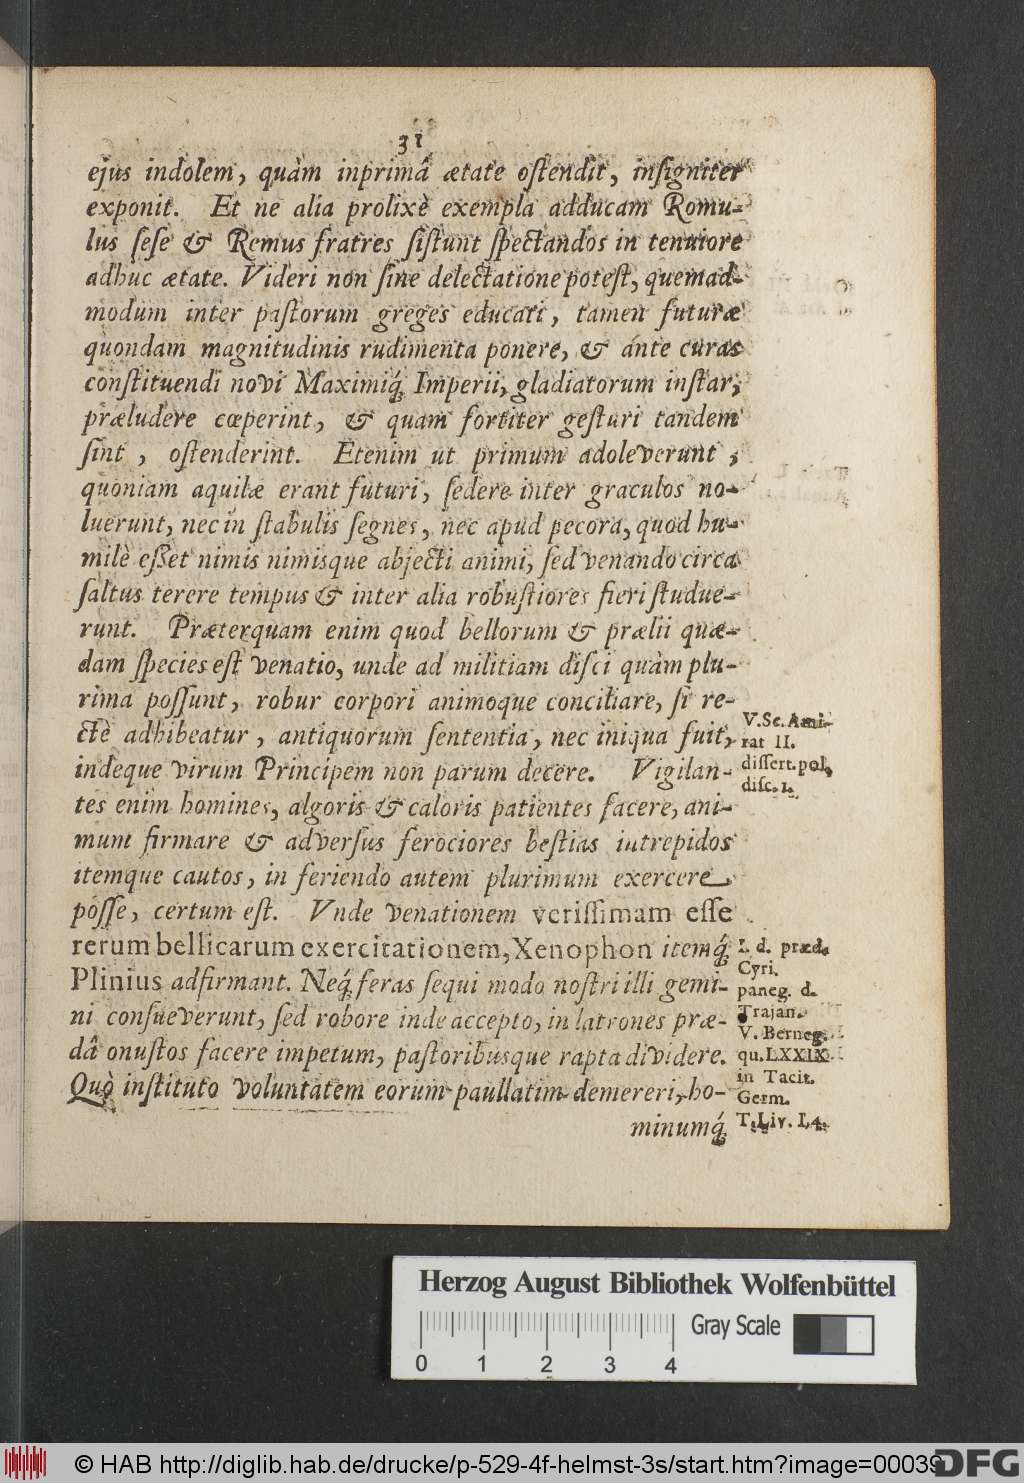 31
ejus indolem, quàm inprimâ ætate ostendit, insigniter
exponit. Et ne alia prolixè exempla adducam Romu-
lus sese & Remus fratres sistunt spectandos in tenuiore
adhuc ætate. Videri non sine delectatione potest, quemad-
modum inter pastorum greges educati, tamen futuræ
quondam magnitudinis rudimenta ponere, & ánte curas
constituendi novi Maximiq́; Imperii, gladiatorum instar,
præludere cœperint, & quam fortiter gesturi tandem
sint, ostenderint. Etenim ut primum adoleverunt,
quoniam aquilæ erant futuri, sedere inter graculos no-
luerunt, nec in stabulis segnes, nec apud pecora, quod hu-
mile esset nimis nimisque abjecti animi, sed venando circa
saltus terere tempus & inter alia robustiores fieri studue-
runt. Præterquam enim quod bellorum & prælii quæ-
dam species est venatio, unde ad militiam disci quàm plu-
rima possunt, robur corpori animoque conciliare, si re-
ctè adhibeatur, antiquorum sententia, nec iniqua fuit,
indeque virum Principem non parum decere. Vigilan-
tes enim homines, algoris & caloris patientes facere, ani-
mum firmare & adversus ferociores bestias intrepidos
itemque cautos, in feriendo autem plurimum exercere
posse, certum est. Vnde venationem verissimam esse
rerum bellicarum exercitationem, Xenophon itemq́;
Plinius adfirmant. Neq́; feras sequi modo nostri illi gemi-
ni consueverunt, sed robore inde accepto, in latrones præ-
dâ onustos facere impetum, pastoribusque rapta dividere.
Quò instituto voluntatem eorum paullatim demereri, ho-
minumq́;
V. Sc. Ami-
rat II.
dissert. pol.
disc. 1.
I. d. præd.
Cyri.
paneg. d.
Trajan.
V. Berneg.
qu. LXXIX
in Tacit.
Germ.
T. Liv. I, 4.
Herzog August Bibliothek Wolfenbüttel
Gray Scale
0 1 2 3 4
© HAB http://diglib.hab.de/drucke/p-529-4f-helmst-3s/start.htm?image=00039
DFG